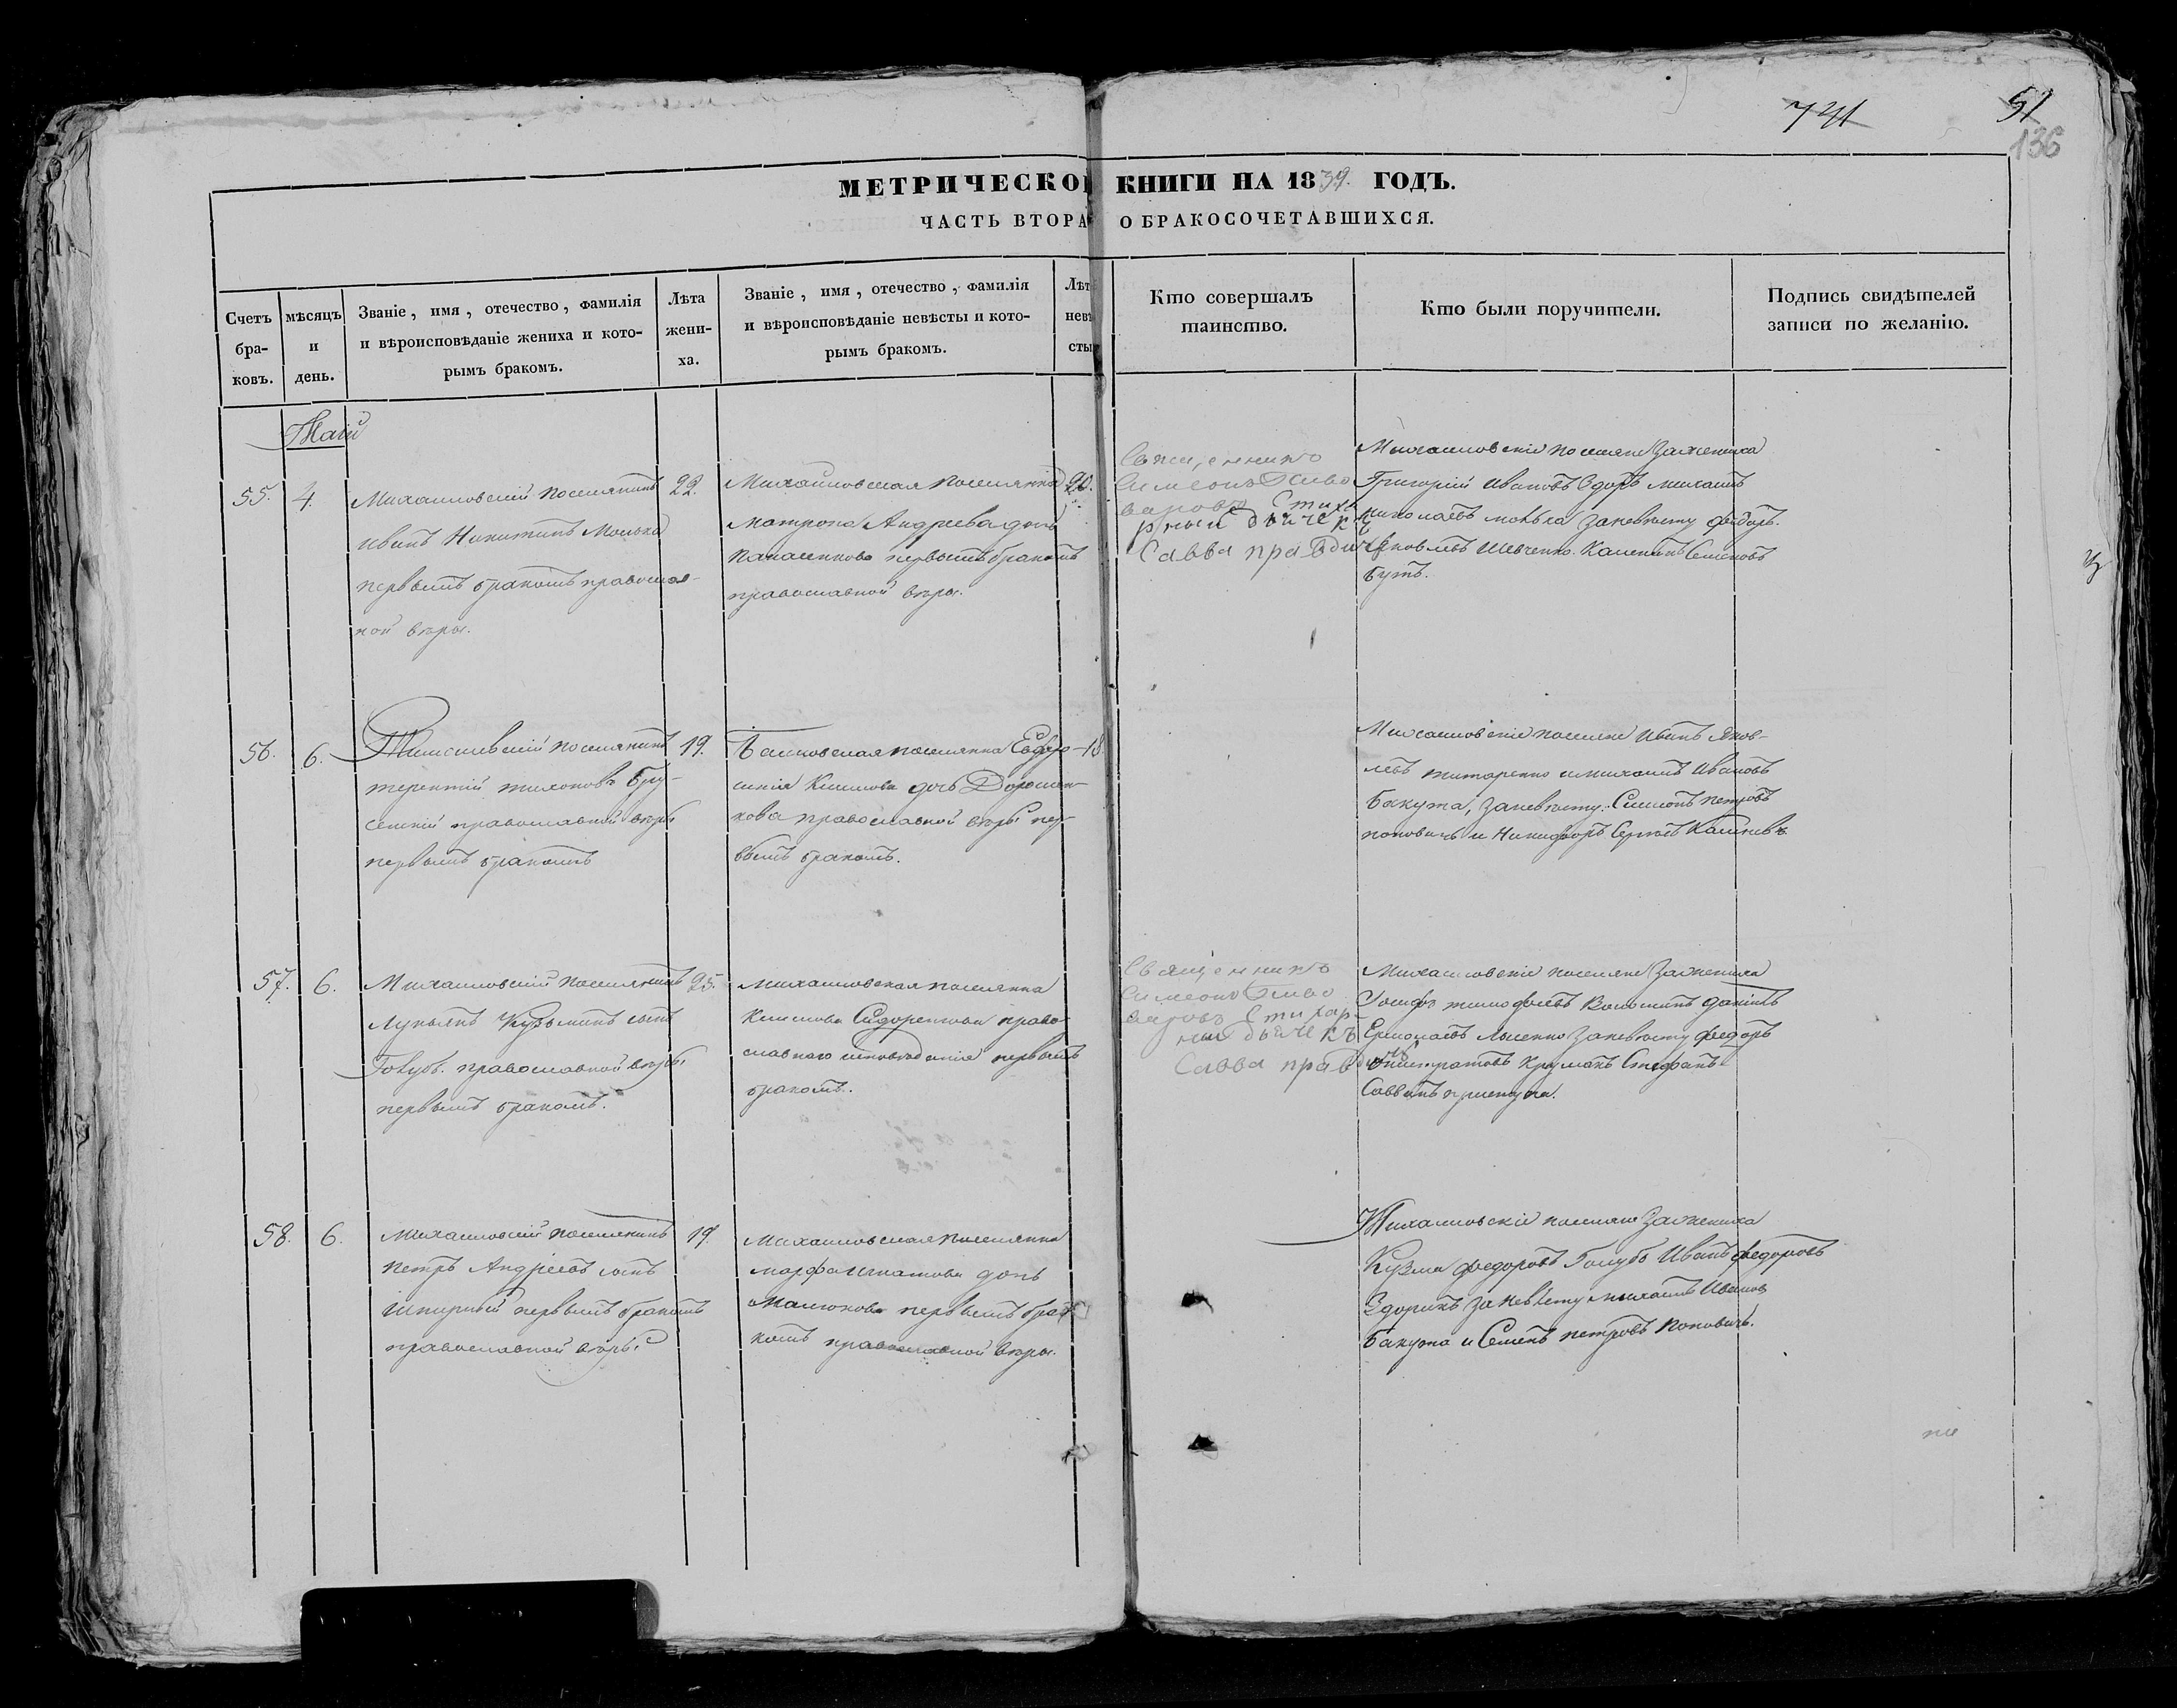 741 51
136
МЕТРИЧЕСКОЙ КНИГИ НА 1839. ГОДЪ.
ЧАСТЬ ВТОРАЯ О БРАКОСОЧЕТАВШИХСЯ.
Счетъ
бра-
ковъ.
мѣсяцъ
и
день.
Званіе, имя, отечество, фамилія
и вѣроисповѣданіе жениха и кото-
рымъ бракомъ.
Лѣта
жени-
ха.
Званіе, имя, отечество, фамилія
и вѣроисповѣданіе невѣсты и кото-
рымъ бракомъ.
Лѣт
невѣ
сты
Кто совершалъ
таинство.
Кто были поручители.
Подпись свидѣтелей
записи по желанію.
Маій
55. 4.
Михайловскій поселянинъ
иванъ Никитинъ
первымъ бракомъ православ-
ной вѣры.
22.
Михайловская поселянка
матрона Андреева дочь
Панасенкова первымъ бракомъ
православной вѣры.
20.
Священникъ
Симеонъ
Стиха
рный дьячекъ
Савва правдичъ
Михайловскіе поселяне За жениха
Григорій Ивановъ Сдоръ михаилъ
николаевъ за невѣсту федоръ
Яковлевъ Шевченко. Семеновъ
Бутъ.
56. 6.
поселянинъ
терентій тихоновъ
православной вѣры
первымъ бракомъ
19.
поселянка Евфро-
синія Климова дочь Дорошен-
кова православной вѣры пер-
вымъ бракомъ.
18
Михайловскіе поселяне Иванъ Яков-
левъ титаренко и михаилъ Ивановъ
Бакута, за невѣсту: Симеонъ петровъ
поповичь и Никифоръ
57. 6.
Михайловскій поселянинъ
Лукьянъ Кузьминъ сынъ
Голубъ. православной вѣры
первымъ бракомъ.
25.
михайловская поселянка
Климова Сидоренкова право-
славнаго исповѣданія первымъ
бракомъ.
Священникъ
Симеонъ
Стихар-
ный дьячекъ
Савва правдичъ
Михайловскіе поселяне За жениха
Іосифъ тимофеевъ Волошинъ данилъ
Ермолаевъ Лысенко за невѣсту федоръ
Стефанъ
Саввинъ
58. 6.
михайловскій поселянинъ
петръ Андреевъ сынъ
первымъ бракомъ
православной вѣры
19.
Михайловская поселянка
марфа Игнатова дочь
Малюкова первымъ бра-
комъ православной вѣры.
Михайловскіе поселяне За жениха
Кузма федоровъ Голубъ Иванъ федоровъ
Сдорикъ за невѣсту михаилъ Ивановъ
Бакута и Семенъ петровъ поповичъ.